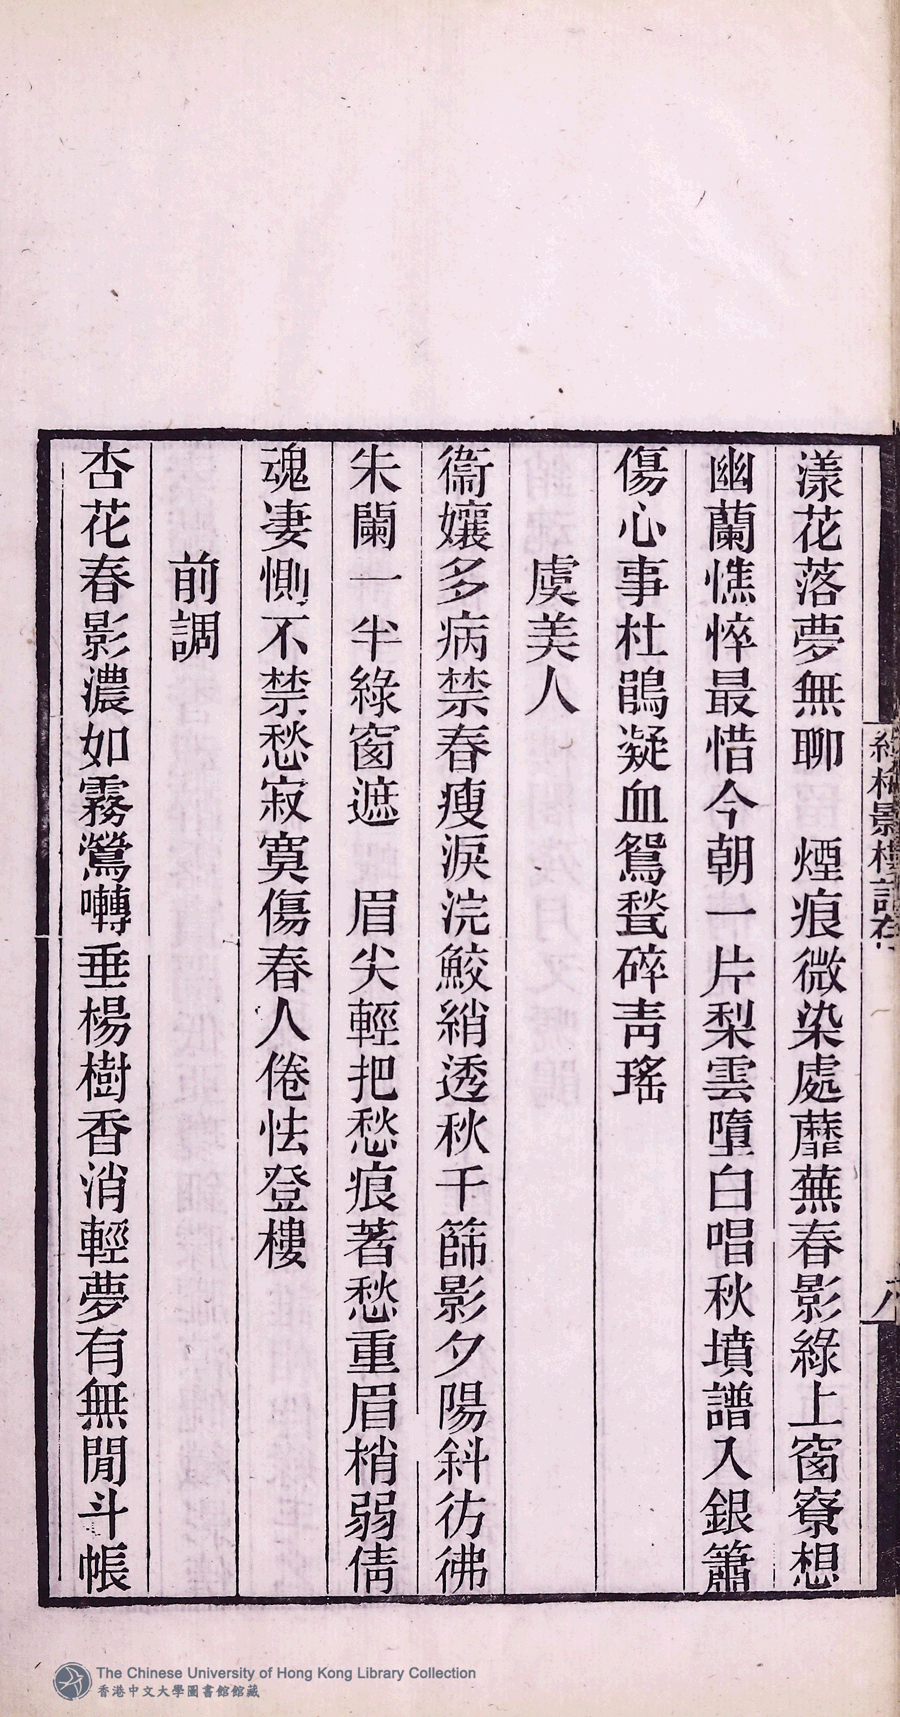 漾花落夢無聊　煙痕微染處蘼蕪春影綠上窗寮想
幽蘭憔悴最惜今朝一片梨雲墮白唱秋墳譜入銀簫
傷心事杜鵑凝血鴛甃碎青瑤
虞美人
衞孃多病禁春瘦淚浣鮫綃透秋千篩影夕陽斜彷彿
朱闌一半綠窗遮　眉尖輕把愁痕著愁重眉梢弱倩
魂凄惻不禁愁寂寞傷春人倦怯登樓
前調
杏花春影濃如霧鶯囀垂楊樹香消輕夢有無閒斗帳
The Chinese University of Hong Kong Library Collection
香港中文大學圖書館館藏